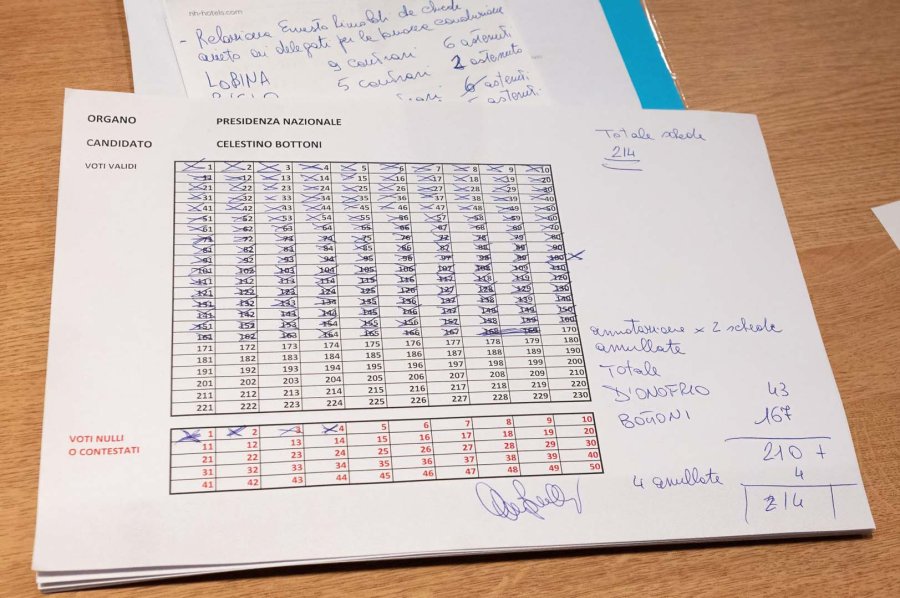 nh-hotels.com
- Relazione Ernesto Rinaldi de chiede
ai delegati per la buona conduzione
9 contrari 6 astenuti
LOBINA 5 contrari 2 astenuto
6 astenuti
ORGANO PRESIDENZA NAZIONALE
CANDIDATO CELESTINO BOTTONI
Totale schede
214
VOTI VALIDI
1 2 3 4 5 6 7 8 9 10
11 12 13 14 15 16 17 18 19 20
21 22 23 24 25 26 27 28 29 30
31 32 33 34 35 36 37 38 39 40
41 42 43 44 45 46 47 48 49 50
51 52 53 54 55 56 57 58 59 60
61 62 63 64 65 66 67 68 69 70
71 72 73 74 75 76 77 78 79 80
81 82 83 84 85 86 87 88 89 90
91 92 93 94 95 96 97 98 99 100
101 102 103 104 105 106 107 108 109 110
111 112 113 114 115 116 117 118 119 120
121 122 123 124 125 126 127 128 129 130
131 132 133 134 135 136 137 138 139 140
141 142 143 144 145 146 147 148 149 150
151 152 153 154 155 156 157 158 159 160
161 162 163 164 165 166 167 168 169 170
171 172 173 174 175 176 177 178 179 180
181 182 183 184 185 186 187 188 189 190
191 192 193 194 195 196 197 198 199 200
201 202 203 204 205 206 207 208 209 210
211 212 213 214 215 216 217 218 219 220
221 222 223 224 225 226 227 228 229 230
annotazione x 2 schede
annullate
Totale
D'ONOFRIO 43
BOTTONI 167
210 +
4 annullate 4
214
VOTI NULLI
O CONTESTATI
1 2 3 4 5 6 7 8 9 10
11 12 13 14 15 16 17 18 19 20
21 22 23 24 25 26 27 28 29 30
31 32 33 34 35 36 37 38 39 40
41 42 43 44 45 46 47 48 49 50